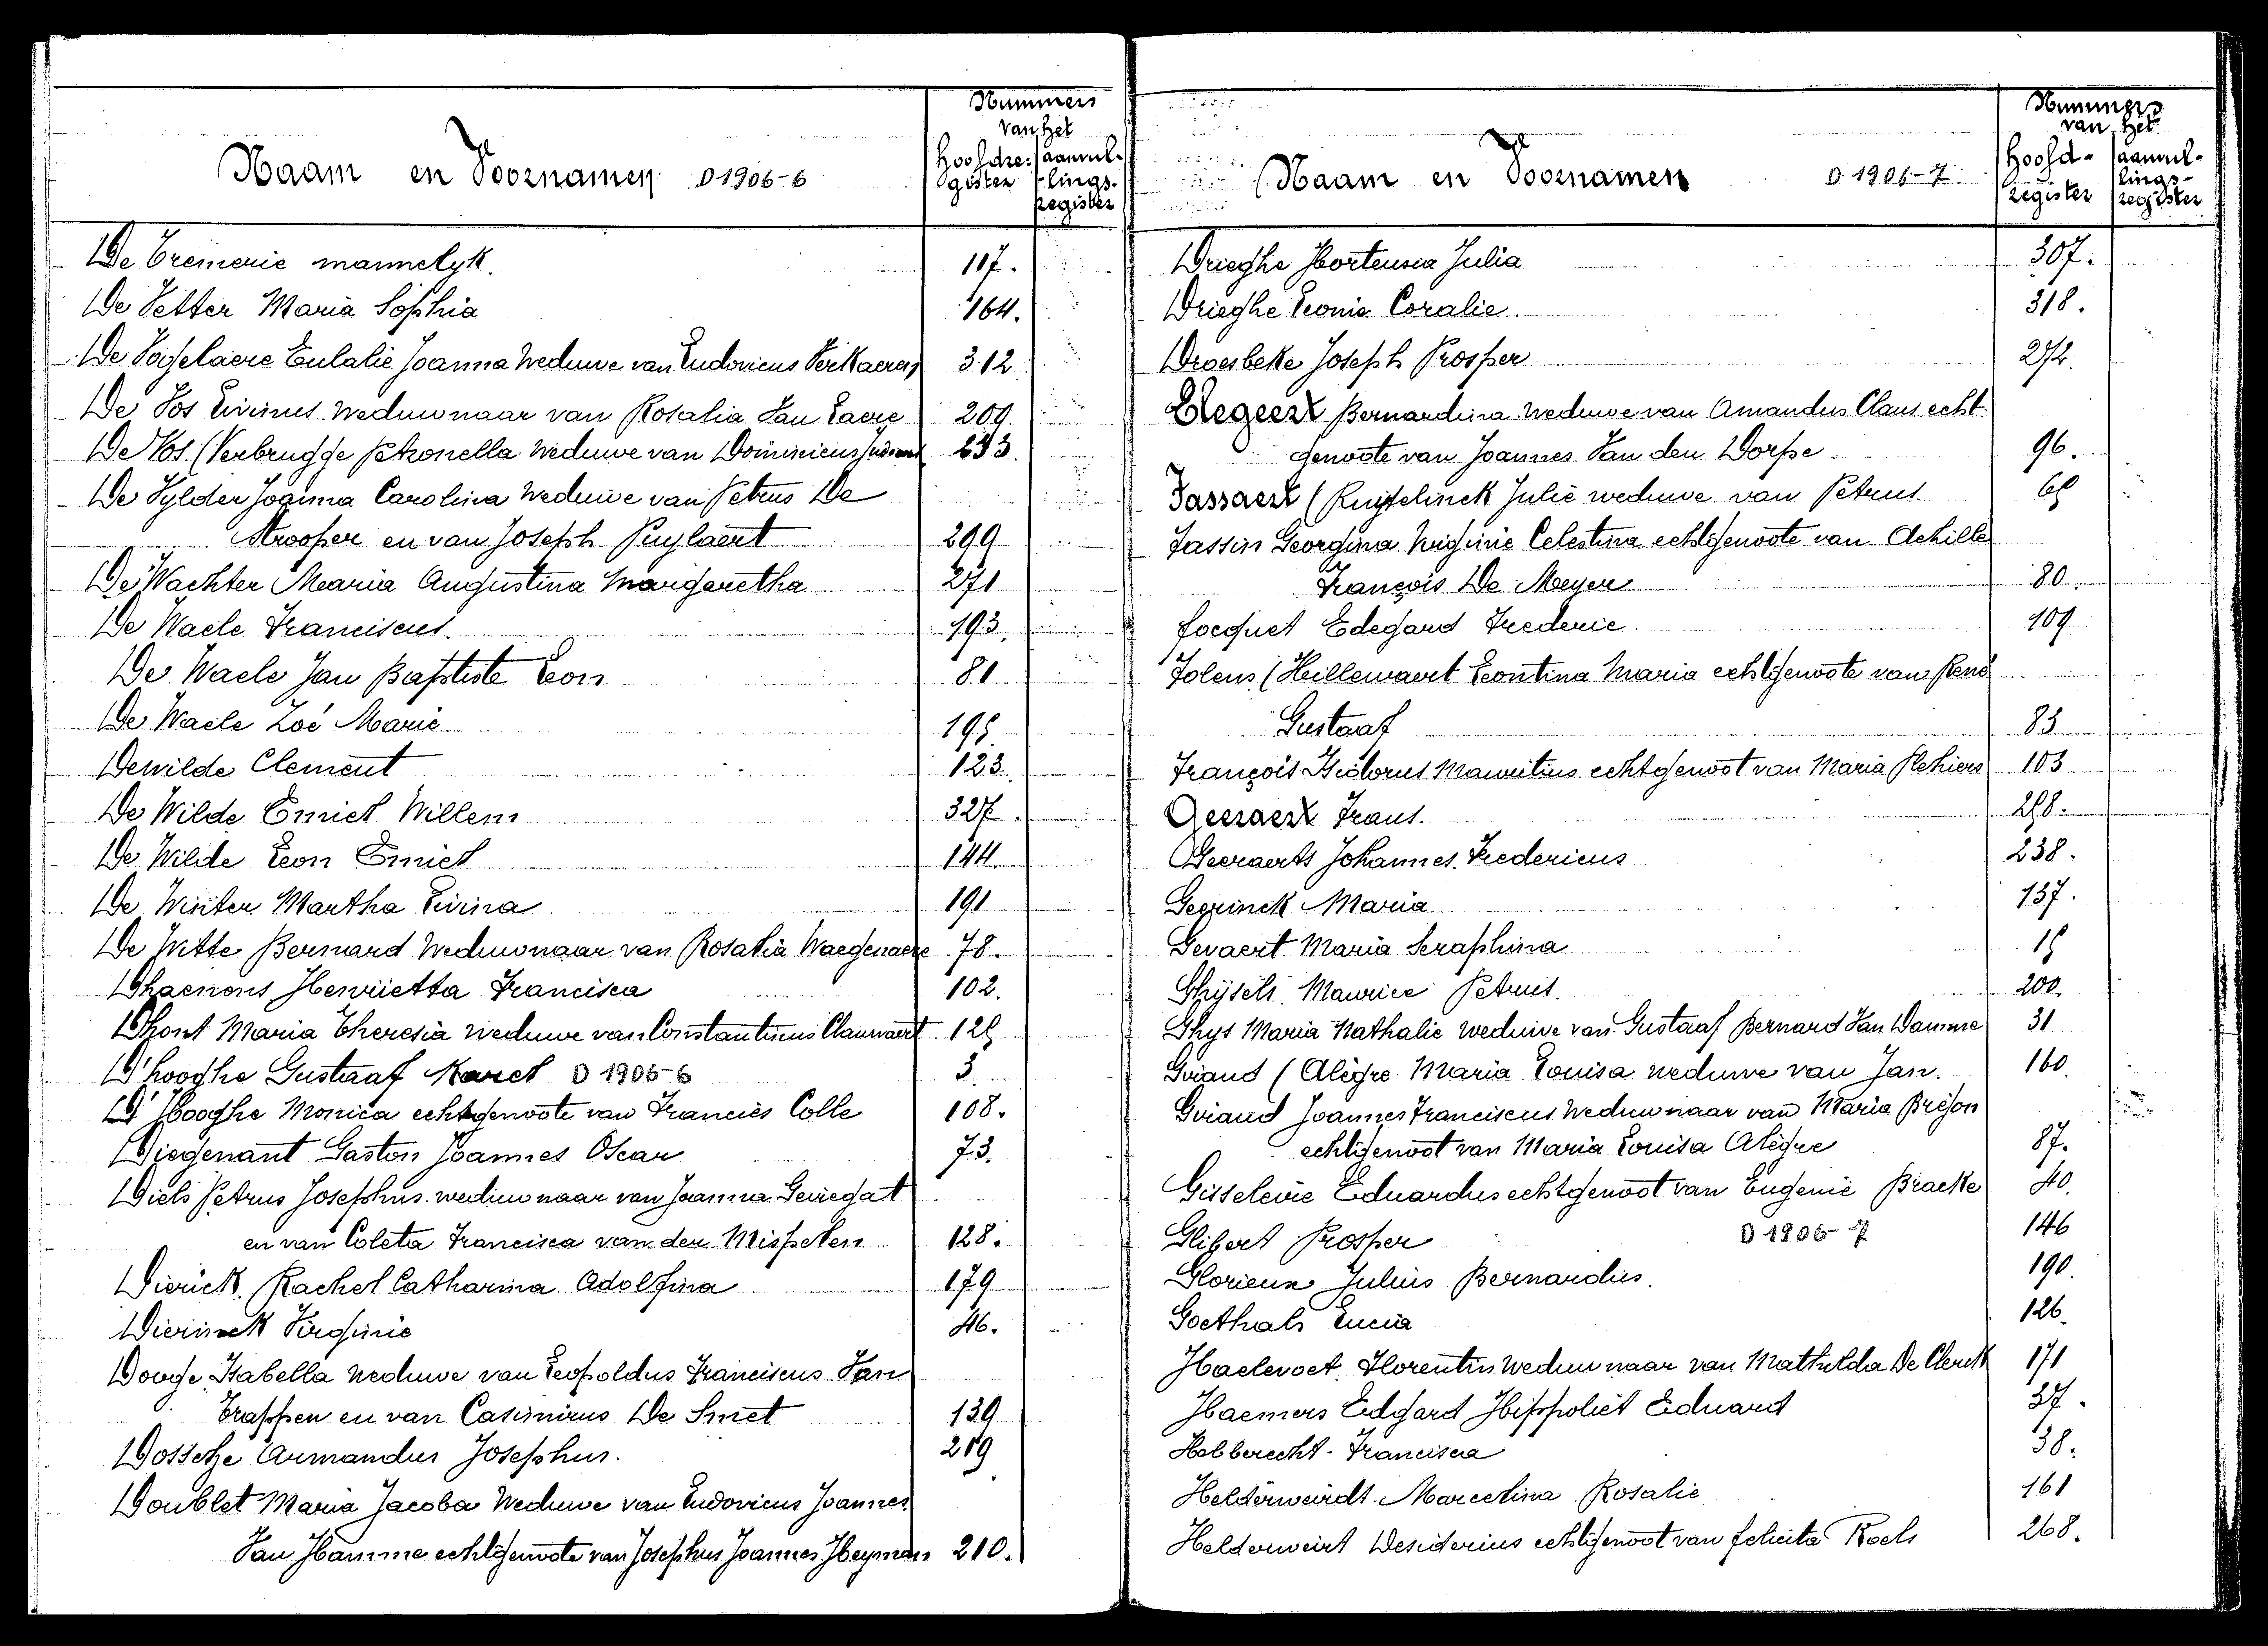 Nummers
van het
Naam en Voornamen D 1906-6
Hoofdre: aanvul-
gister lings-
register
De Cremerie mannelyk. 117.
De Vetter Maria Sophia 164.
De Vogelaere Eulalie Joanna Weduwe van Ludovicus Verkaeren 312
De Vos Livinus Weduwnaar van Rosalia Van Laere 209
De Vos (Verbrugge Petronella Weduwe van Dominicus 233.
De Vylder Joanna Carolina Weduwe van Petrus De
Strooper en van Joseph Puylaert 299
De Wachter Maria Augustina Margaretha 271
De Waele Franciscus. 193.
De Waele Jan Baptiste Leon 81
De Waele Zoé Marie 195
Dewilde Clement 123.
De Wilde Emiel Willem 327.
De Wilde Leon Emiel 144
De Winter Martha Livina 191
De Witte Bernard Weduwnaar van Rosalia Waegenaere 78.
Dhaenens Henrietta Francisca 102.
Dhont Maria Theresia weduwe van Constantinus Clauwaert 125
D'hooghe Gustaaf Karel D 1906-6 3.
D'Hooghe Monica echtgenoote van Francies Colle 108.
Diegenant Gaston Joannes Oscar 73.
Diels Petrus Josephus weduwnaar van Joanna Geiregat
en van Coleta Francisca van der Mispelen 128.
Dierick Rachel Catharina Adolfina 179
Dierinck Virginie 46.
Dooge Isabella Weduwe van Leopoldus Franciscus Van
Trappen en van Casimirus De Smet 139
Dossche Armandus Josephus. 219
Doublet Maria Jacoba Weduwe van Ludovicus Joannes
Van Hamme echtgenoote van Josephus Joannes Heyman 210.
Nummers
van het
Naam en Voornamen D 1906-7
Hoofd- aanvul-
lings-
register register
Drieghe Hortensia Julia 307.
Drieghe Leonie Coralie 318.
Droesbeke Joseph Prosper 272.
Elegeert Bernardina weduwe van Amandus Claus echt-
genoote van Joannes Van den Dorpe 96.
Fassaert (Ruyfelinck Julie weduwe van Petrus 65
Fassin Georgina Virginie Celestina echtgenoote van Achille
François De Meyere 80.
Focquet Edegard Frederic. 109
Folens (Hillewaert Leontina Maria echtgenoote van René
Gustaaf 83
François Isidorus Mauritius echtgenoot van Maria Plehiers 103
Geeraert Frans. 258.
Geeraerts Johannes Fredericus 238.
Geerinck Maria 137.
Gevaert Maria Seraphina 15
Ghijsels Maurice Petrus. 200.
Ghys Maria Nathalie weduwe van Gustaaf Bernard Van Damme 31
Giraud (Alègre Maria Louisa weduwe van Jan. 160
Giraud Joannes Franciscus Weduwnaar van Maria Brejon
echtgenoot van Maria Louisa Alègre 87.
Gisseleire Eduardus echtgenoot van Eugenie Braeke 40.
Glibert Prosper D 1906-7 146
Glorieux Julius Bernardus. 190.
Goethals Lucia 126.
Haelvoet Florentin Weduwnaar van Mathilda De Clerck 171
Haemers Edgard Hippoliet Eduard 37.
Hebberecht Francisca 38.
Helderweirdt Marcelina Rosalie 161
Helderweirt Desiderius echtgenoot van Felicita Roels 268.